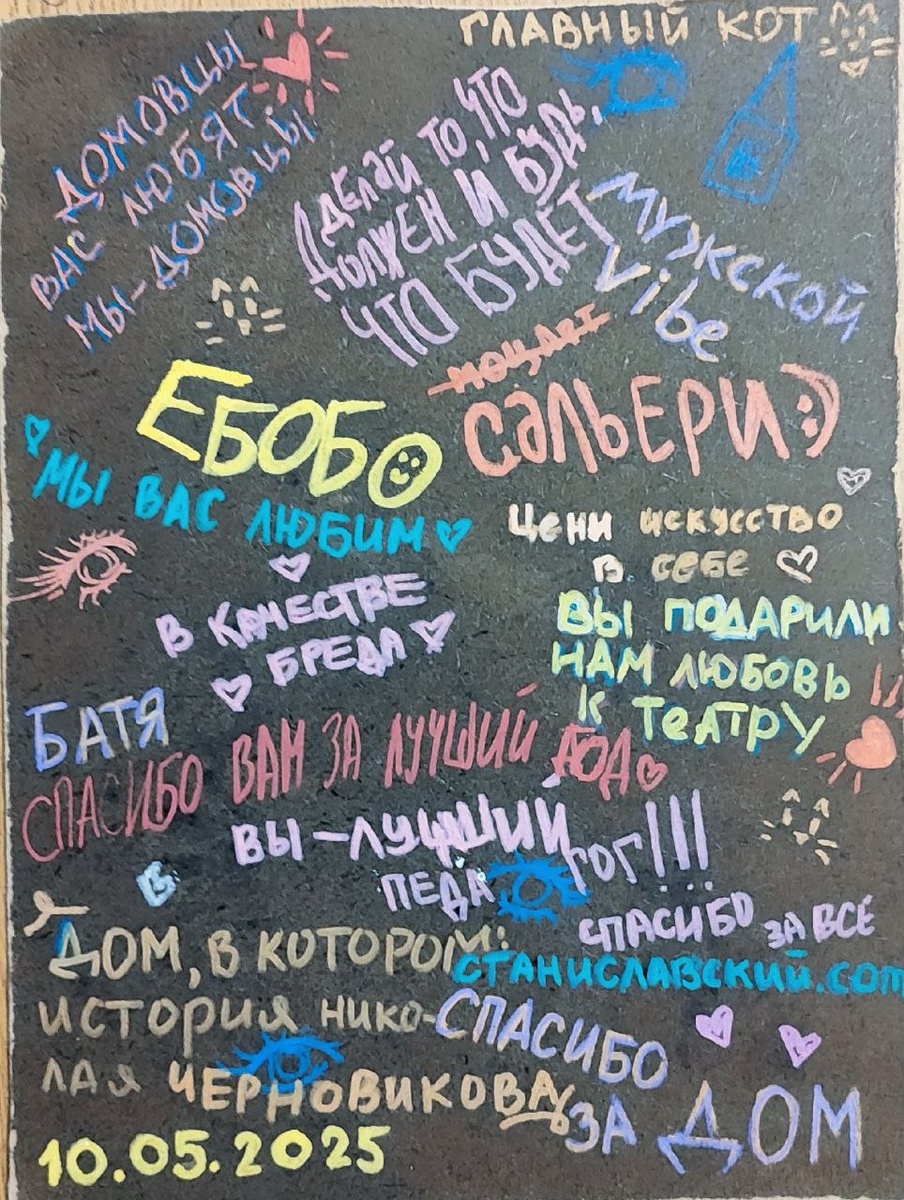 ГЛАВНЫЙ КОТ
ДОМОВЦЫ
ВАС ЛЮБЯТ
МЫ-ДОМОВЦЫ
ДЕЛАЙ ТО, ЧТО
ДОЛЖЕН И БУДЬ,
ЧТО БУДЕТ
МУЖСКОЙ
vibe
МОЦАРТ
САЛЬЕРИ:)
ЕБОБО
МЫ ВАС ЛЮБИМ
Цени искусство
в себе
В КАЧЕСТВЕ
БРЕДА
ВЫ ПОДАРИЛИ
НАМ ЛЮБОВЬ
К ТеАТРУ
БАТЯ
СПАСИБО ВАМ ЗА ЛУЧШИЙ ГОД
ВЫ-ЛУЧШИЙ
ПЕДАГОГ!!!
СПАСИБО ЗА ВСЕ
ДОМ, В КОТОРОМ:
СТАНИСЛАВСКИЙ.com
история нико-
лая ЧЕРНОВИКОВА
СПАСИБО
ЗА ДОМ
10.05.2025